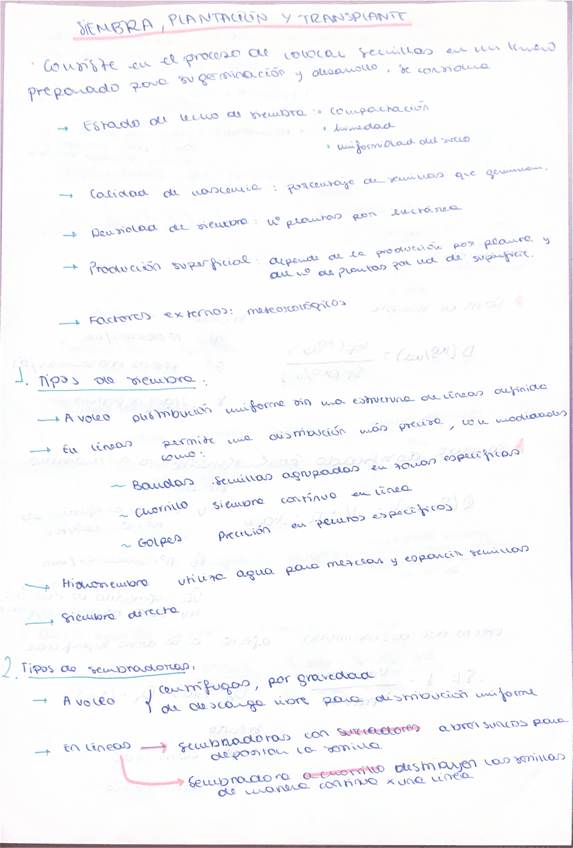 SIEMBRA, PLANTACIÓN Y TRANSPLANTE
· Consiste en el proceso de colocar semillas en un lecho
preparado para su germinación y desarrollo, se considera
→ Estado de lecho de siembra: · compactación
· humedad
· uniformidad del suelo
→ Calidad de nascencia: porcentaje de semillas que germinan.
→ Densidad de siembra: nº plantas por hectárea
→ Producción superficial: depende de la producción por planta y
del nº de plantas por ud de superfic.
→ Factores externos: meteorológicos
1. Tipos de siembra:
→ A voleo distribución uniforme sin una estructura de líneas definida
→ En líneas permite una distribución más precisa, con modalidades
como:
~ Bandas semillas agrupadas en zonas específicas
~ Chorrillo siembra contínua en línea
~ Golpes Precisión en puntos específicos
→ Hidrosiembra utiliza agua para mezclar y esparcir semillas
→ Siembra directa
2. Tipos de sembradoras.
→ A voleo { centrífugas, por gravedad
de descarga libre para distribución uniforme
→ En líneas → Sembradoras con surcadores abren surcos para
depositar la semilla
→ Sembradora a chorrillo distribuyen las semillas
de manera contínua x una línea